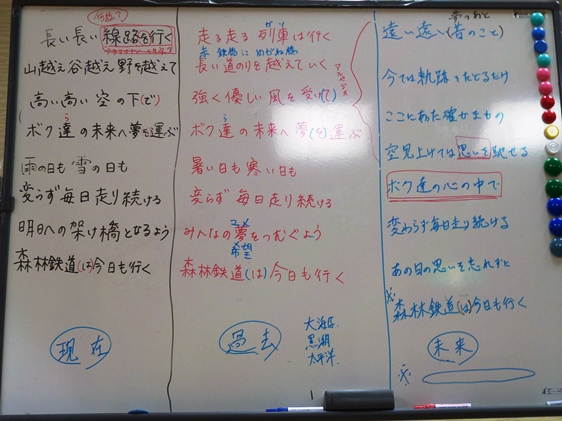 長い長い 線路を行く
山越え谷越え 野を越えて
高い高い 空の下(で)
ボク達の未来へ夢を運ぶ
ら
雨の日も 雪の日も
変らず 毎日走り続ける
明日への架け橋となるよう
森林鉄道(は)今日も行く
現在
走る走る 列車は行く
長い道のりを越えていく
強く優しい 風を受け
ボク達の未来へ 夢(を)運ぶ
ら
暑い日も 寒い日も
変らず 毎日走り続ける
みんなの夢をつむぐよう
希望
森林鉄道(は)今日も行く
過去
大海原
黒潮
太平洋
夢のあと
遠い遠い(昔のこと)
今では軌跡 たどるだけ
ここにあった確かなもの
空見上げては思いを馳せる
ボク達の心の中で
変わらず毎日走り続ける
あの日の思いを忘れずに
※
森林鉄道(は)今日も行く
未来
※